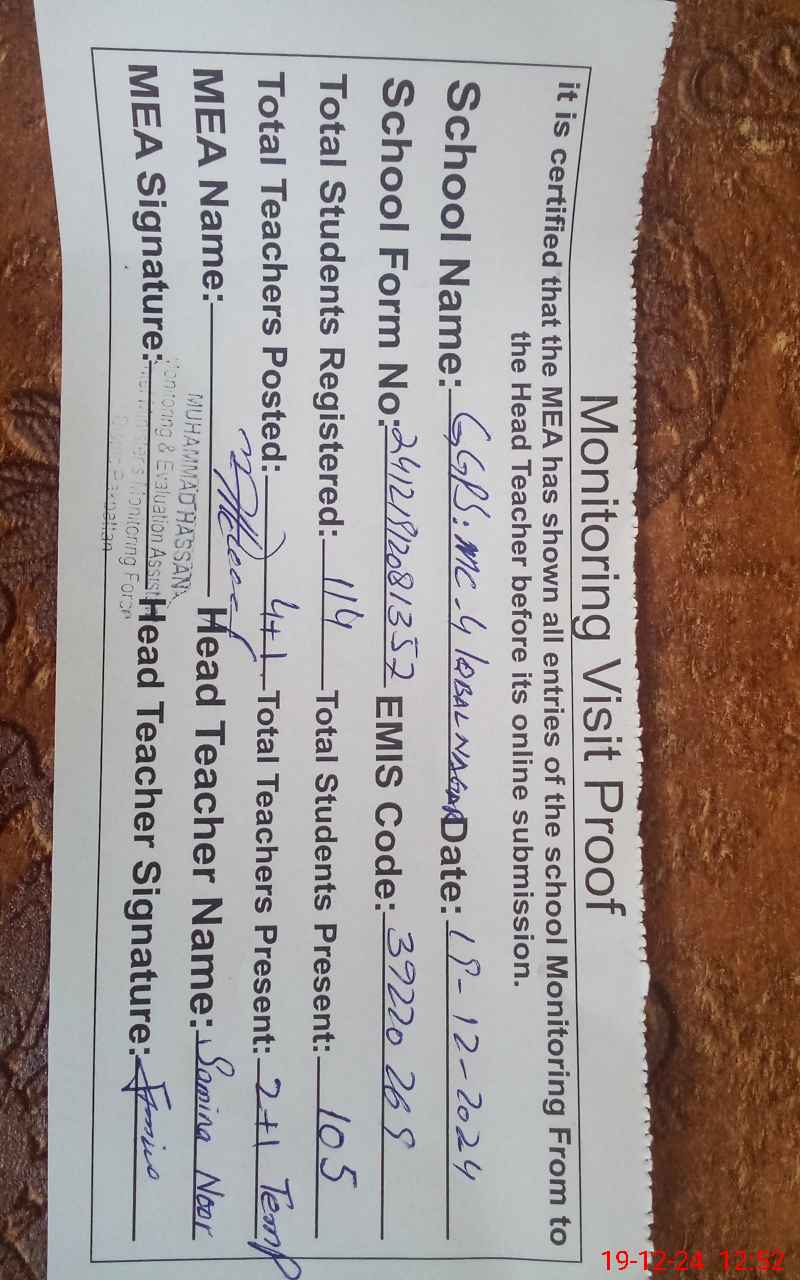 Monitoring Visit Proof
it is certified that the MEA has shown all entries of the school Monitoring From to
the Head Teacher before its online submission.
School Name: GGPS: MC-4 IQBAL NAGAR Date: 19-12-2024
School Form No: 24121912081352 EMIS Code: 39220269
Total Students Registered: 114 Total Students Present: 105
Total Teachers Posted: 4+1 Total Teachers Present: 2+1 Temp
MEA Name: Head Teacher Name: Samina Noor
MUHAMMAD HASSAN
MEA Signature: Head Teacher Signature:
Monitoring & Evaluation Assist
Monitoring Force
19-12-24 12:52